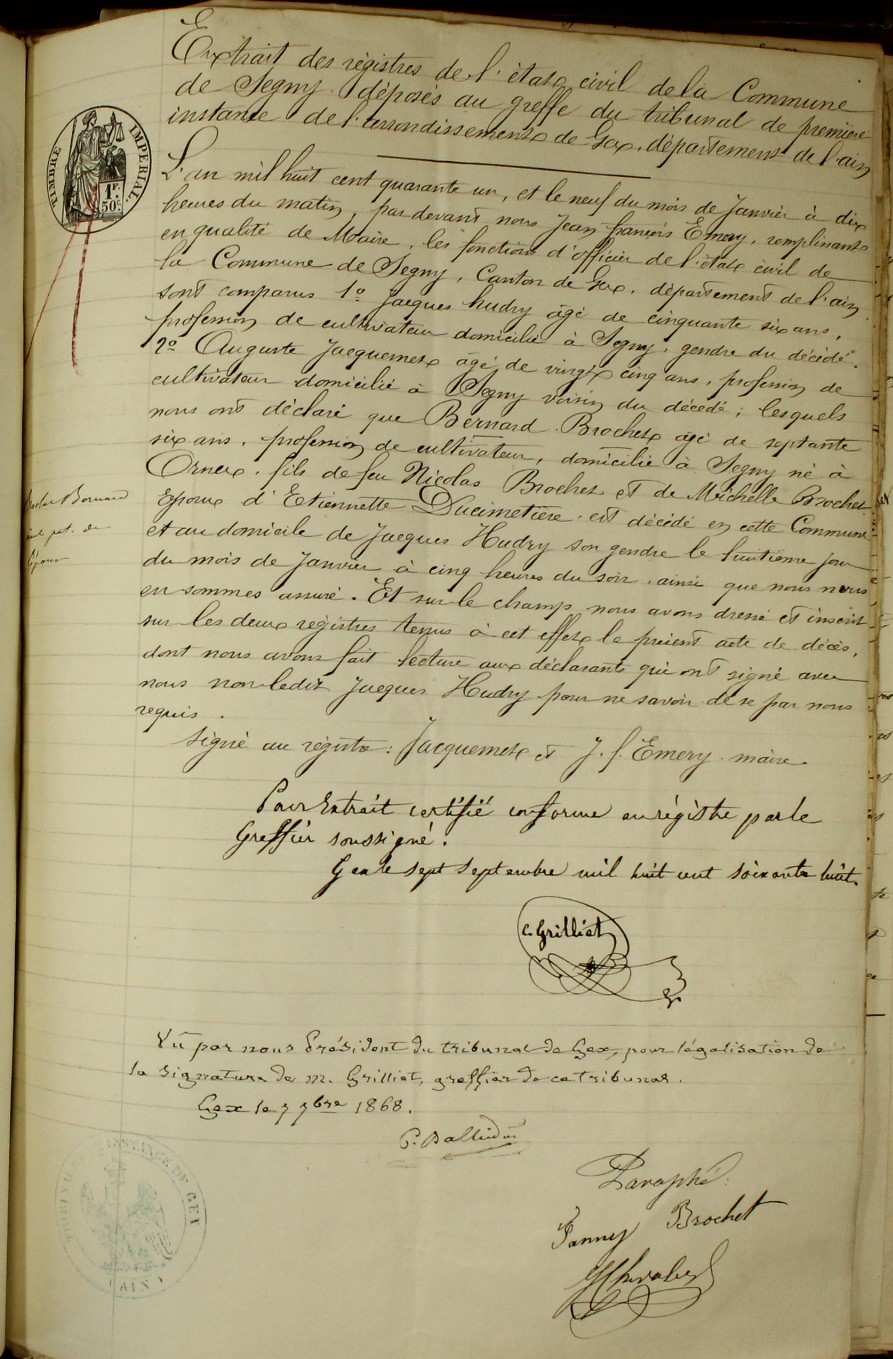 Extrait des régistres de l'état civil de la Commune
de Segny déposés au greffe du tribunal de première
instance de l'arrondissement de Gex, département de l'ain
TIMBRE IMPERIAL
1F.
50c.
L'an mil huit cent quarante un, et le neuf du mois de Janvier à dix
heures du matin, par devant nous Jean françois Emery, remplissant
en qualité de Maire, les fonctions d'officier de l'état civil de
la Commune de Segny, Canton de Gex, département de l'ain
sont comparus 1o. Jacques hudry âgé de cinquante six ans,
profession de cultivateur domicilié à Segny, gendre du décédé.
2o. Auguste Jacquemet âgé de vingt cinq ans, profession de
cultivateur domicilié à Segny voisin du décédé; lesquels
nous ont déclaré que Bernard Brochet âgé de septante
six ans, profession de cultivateur, domicilié à Segny né à
Ornex, fils de feu Nicolas Brochet et de Michelle Brochet
Epoux d'Etiennette Ducimetière est décédé en cette Commune
et au domicile de Jacques Hudry son gendre le huitième jour
du mois de Janvier à cinq heures du soir, ainsi que nous nous
en sommes assuré. Et sur le champ nous avons dressé et inscrit
sur les deux régistres tenus à cet effet le présent acte de décès,
dont nous avons fait lecture aux déclarants qui ont signé avec
nous non ledit Jacques Hudry pour ne savoir de ce par nous
requis.
Bernard
pat. de
Signé au régistre: Jacquemet et J. f. Emery maire
Pour Extrait certifié conforme au régistre par le
Greffier soussigné.
Gex le sept septembre mil huit cent soixante huit
C. Grilliet
Vu par nous Président du tribunal de Gex, pour légalisation de
la signature de M. Grilliet, greffier de ce tribunal.
Gex le 7 7bre 1868.
TRIBUNAL INSTANCE DE GEX
(AIN)
Paraphé:
Fanny Brochet